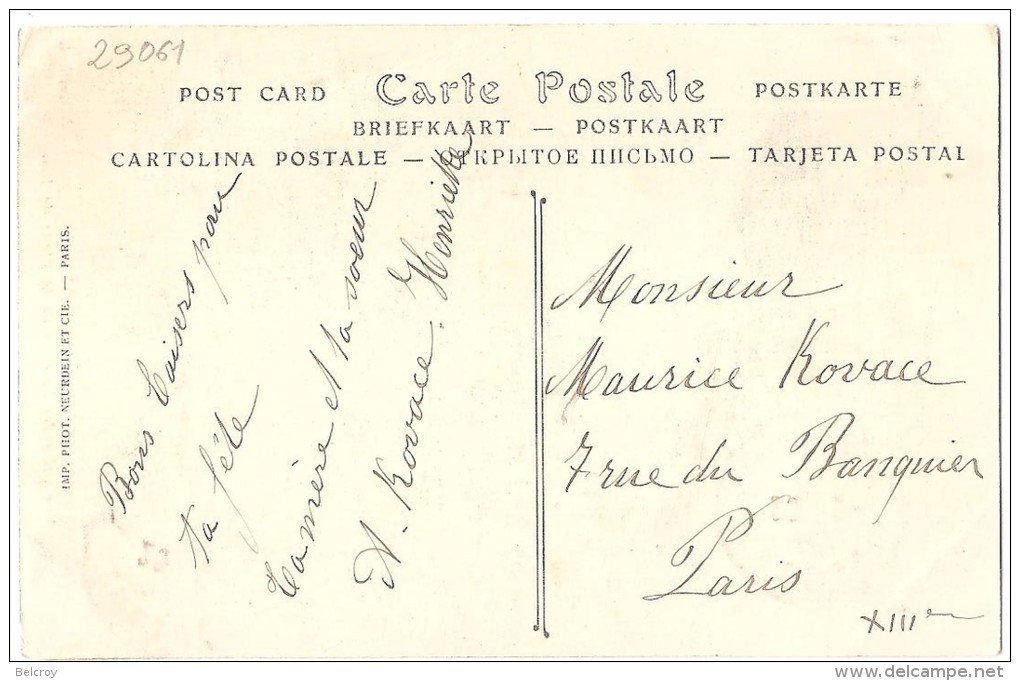 29061
POST CARD Carte Postale POSTKARTE
BRIEFKAART — POSTKAART
CARTOLINA POSTALE — ОТКРЫТОЕ ПИСЬМО — TARJETA POSTAL
IMP. PHOT. NEURDEIN ET CIE. — PARIS.
Bons baisers pour
ta fête
ta mère et ta soeur
A. Kovace. Henriette
Monsieur
Maurice Kovace
7 rue du Banquier
Paris
XIIIe
Belcroy
www.delcampe.net